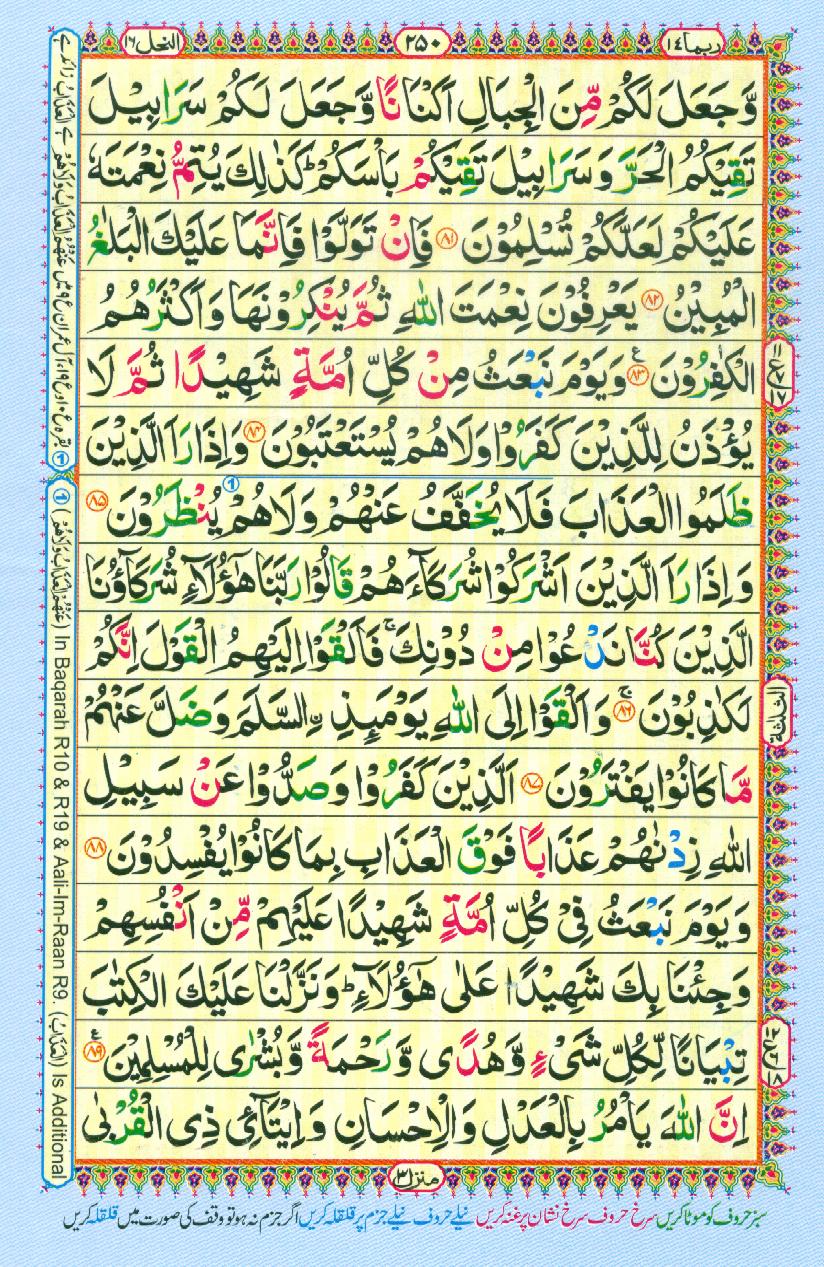 ربما ١٤
٢٥٠
النحل ١٦
وَّجَعَلَ لَكُمْ مِّنَ الْجِبَالِ اَكْنَانًا وَّجَعَلَ لَكُمْ سَرَابِيْلَ
تَقِيْكُمُ الْحَرَّ وَسَرَابِيْلَ تَقِيْكُمْ بَاْسَكُمْ ؕ كَذٰلِكَ يُتِمُّ نِعْمَتَهٗ
عَلَيْكُمْ لَعَلَّكُمْ تُسْلِمُوْنَ ٨١ فَاِنْ تَوَلَّوْا فَاِنَّمَا عَلَيْكَ الْبَلٰغُ
الْمُبِيْنُ ٨٢ يَعْرِفُوْنَ نِعْمَتَ اللّٰهِ ثُمَّ يُنْكِرُوْنَهَا وَاَكْثَرُهُمُ
الْكٰفِرُوْنَ ٨٣ ع وَيَوْمَ نَبْعَثُ مِنْ كُلِّ اُمَّةٍ شَهِيْدًا ثُمَّ لَا
يُؤْذَنُ لِلَّذِيْنَ كَفَرُوْا وَلَا هُمْ يُسْتَعْتَبُوْنَ ٨٤ وَاِذَا رَاَ الَّذِيْنَ
ظَلَمُوا الْعَذَابَ فَلَا يُخَفَّفُ عَنْهُمْ وَلَا هُمْ يُنْظَرُوْنَ ٨٥
وَاِذَا رَاَ الَّذِيْنَ اَشْرَكُوْا شُرَكَآءَهُمْ قَالُوْا رَبَّنَا هٰٓؤُلَآءِ شُرَكَآؤُنَا
الَّذِيْنَ كُنَّا نَدْعُوْا مِنْ دُوْنِكَ ۚ فَاَلْقَوْا اِلَيْهِمُ الْقَوْلَ اِنَّكُمْ
لَكٰذِبُوْنَ ۚ ٨٦ وَاَلْقَوْا اِلَى اللّٰهِ يَوْمَئِذِ ۨالسَّلَمَ وَضَلَّ عَنْهُمْ
مَّا كَانُوْا يَفْتَرُوْنَ ٨٧ اَلَّذِيْنَ كَفَرُوْا وَصَدُّوْا عَنْ سَبِيْلِ
اللّٰهِ زِدْنٰهُمْ عَذَابًا فَوْقَ الْعَذَابِ بِمَا كَانُوْا يُفْسِدُوْنَ ٨٨
وَيَوْمَ نَبْعَثُ فِيْ كُلِّ اُمَّةٍ شَهِيْدًا عَلَيْهِمْ مِّنْ اَنْفُسِهِمْ
وَجِئْنَا بِكَ شَهِيْدًا عَلٰى هٰٓؤُلَآءِ ؕ وَنَزَّلْنَا عَلَيْكَ الْكِتٰبَ
تِبْيَانًا لِّكُلِّ شَيْءٍ وَّهُدًى وَّرَحْمَةً وَّبُشْرٰى لِلْمُسْلِمِيْنَ ٨٩ ع
اِنَّ اللّٰهَ يَاْمُرُ بِالْعَدْلِ وَالْاِحْسَانِ وَاِيْتَآئِ ذِي الْقُرْبٰى
الثلاثة
منزل ٣
① (عَنْهُمُ الْعَذَابُ وَلَا هُمْ) In Baqarah R10 & R19 & Aali-Im-Raan R9. (الْعَذَابُ) Is Additional
سبز حروف کو موٹا کریں سرخ حروف سرخ نشان پر غنہ کریں نیلے حروف نیلے جزم پر قلقلہ کریں اگر جزم نہ ہو تو وقف کی صورت میں قلقلہ کریں